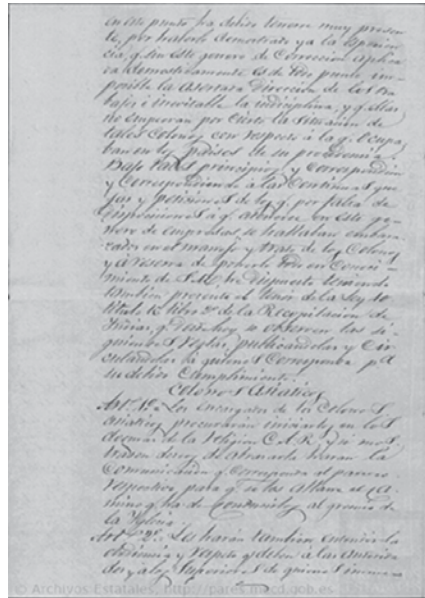 en este punto ha debido tenerse muy presen-
te, por haberlo demostrado ya la esperien-
cia, q. sin este genero de Correccion aplica-
da domesticamente es de todo punto im-
posible la acertada Direccion de los tra-
bajos é inevitable la indiciplina, y q. ellas
no empeoran por cierto la situacion de
tales Colonos con respecto á la q. ocupa-
ban en los paises de su procedencia.
Bajo tales principios y correspondien
y correspondiendo á las continuas que-
jas y peticiones de los q. por falta de
disposiciones á q. atenerse en este ge-
nero de empresas, se hallaban embara-
zados en el manejo y trato de los Colonos
y á reserva de ponerlo todo en conoci-
miento de S.M. he dispuesto teniendo
tambien presente el tenor de la Ley
titulo libro de la Recopilacion de
Indias, q. desde hoy se observen las si-
guientes reglas, publicandolas y cir-
culandolas á quienes corresponda pa
su debido cumplimiento.
Colonos Asiaticos
Art. 1o. Los encargados de los Colonos
asiaticos procurarán iniciarlos en los
docmas de la religion C.A.R. y si mos-
trasen deseos de abrazarla haran la
comunicacion q. corresponda al parroco
respectivo para q. se les allane el ca-
mino q. ha de conducirlos al gremio de
la Yglesia.
Art. 2o. Les harán tambien entender la
obediencia y respeto q. deben á las autorida-
des y a los superiores de quienes
© Archivos Estatales, http://pares.mecd.gob.es